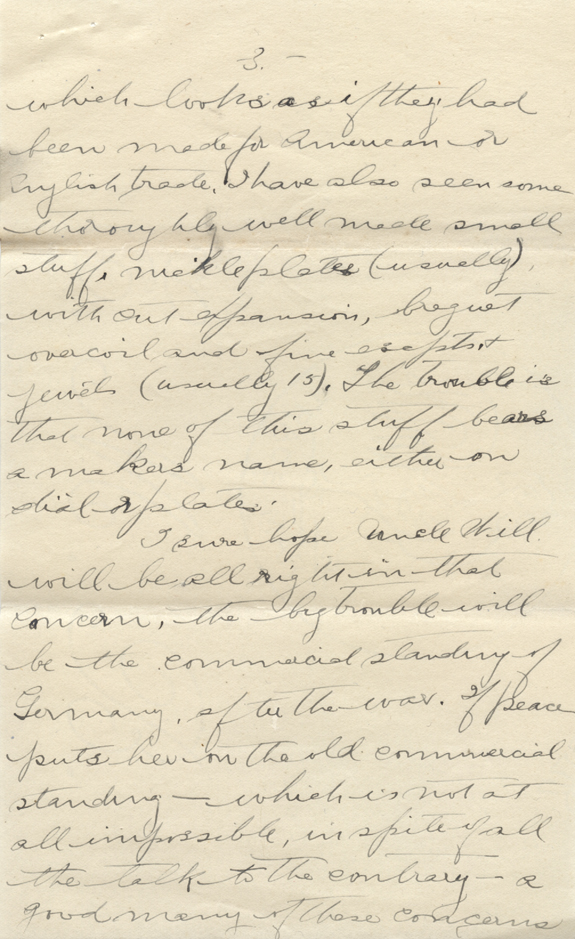 3. —
which looks as if they had
been made for American or
English trade. I have also seen some
thoroughly well made small
stuff, nickle plates (usually),
with cut expansion, breguet
overcoil and fine escpts. +
jewels (usually 15). The trouble is
that none of this stuff bears
a makers name, either on
dial or plates.
I sure hope Uncle Will
will be all right in that
concern, the big trouble will
be the commercial standing of
Germany, after the war. If peace
puts her on the old commercial
standing — which is not at
all impossible, in spite of all
the talk to the contrary — a
good many of these concerns